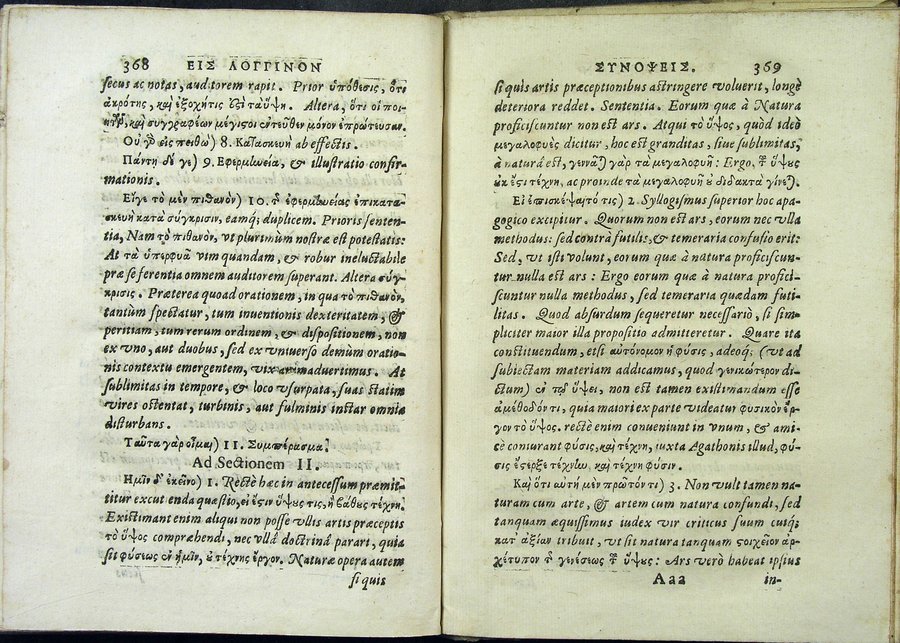 368 ΕΙΣ ΛΟΓΓΙΝΟΝ
secus ac notas, auditorem rapit. Prior ὑπόθεσις, ὅτι
ἀκρότης, καὶ ἐξοχήτις
Altera, ὅτι οἱ ποι-
καὶ συγγραφέων μέγιστοι ἐντεῦθεν μόνον ἐπρώτευσαν.
Οὐ γὸ εἰς πειθὼ) 8. Κατασκευὴ ab effectis.
Πάντη δέ γε) 9. Εφερμωεία, & illustratio confir-
mationis.
Εἴγε τὸ μὲν πιθανὸν) 10. τ ἐφερμωείας ἐπικατα-
σκευὴ κατὰ σύγκρισιν, eamq; duplicem. Prioris senten-
tia, Nam τὸ πιθανὸν, vt plurimùm nostræ est potestatis:
At τὰ ὑπερφυᾶ vim quandam, & robur ineluctabile
præ se ferentia omnem auditorem superant. Altera σύγ-
κρισις. Præterea quoad orationem, in qua τὸ πιθανὸν,
tantùm spectatur, tum inuentionis dexteritatem, &
peritiam, tum rerum ordinem, & dispositionem, non
ex vno, aut duobus, sed ex vniuerso demùm oratio-
nis contextu emergentem, vix animaduertimus. At
sublimitas in tempore, & loco vsurpata, suas statim
vires ostentat, turbinis, aut fulminis instar omnia
disturbans.
Ταῦτα γὰρ οἶμαι) 11. Συμπέρασμα.
Ad Sectionem II.
Ημῖν δ' ἐκεῖνο) 1. Rectè hæc in antecessum præmit-
titur excutienda quæstio, εἰ ἔστιν ὕψους τις, ἢ βάθους τέχνη.
Existimant enim aliqui non posse vllis artis præceptis
τὸ ὕψος comprehendi, nec vllâ doctrinâ parari, quia
sit φύσεως ἐν ἡμῖν, οὐ τέχνης ἔργον. Naturæ opera autem
si quis
ΣΥΝΟΨΕΙΣ. 369
si quis artis præceptionibus astringere voluerit, longè
deteriora reddet. Sententia. Eorum quæ à Natura
proficiscuntur non est ars. Atqui τὸ ὕψος, quòd ideò
μεγαλοφυὲς dicitur, hoc est granditas, siue sublimitas,
à naturâ est, γεννᾶ) γὰρ τὰ μεγαλοφυῆ: Ergo, τ ὕψους
οὐκ ἔστι τέχνη, ac proinde τὰ μεγαλοφυῆ οὐ διδακτὰ γίνε).
Εἰ ἐπισκέψαιτό τις) 2. Syllogismus superior hoc apa-
gogico excipitur. Quorum non est ars, eorum nec vlla
methodus: sed contrà futilis, & temeraria confusio erit:
Sed, vt isti volunt, eorum quæ à natura proficiscun-
tur nulla est ars: Ergo eorum quæ à natura profici-
scuntur nulla methodus, sed temeraria quædam futi-
litas. Quod absurdum sequeretur necessariò, si sim-
pliciter maior illa propositio admitteretur. Quare ita
constituendum, etsi αὐτόνομον ἡ φύσις, adeoq; (vt ad
subiectam materiam addicamus, quod γενικώτερον di-
ctum) ἐν τῷ ὕψει, non est tamen existimandum esse
ἀμέθοδόν τι, quia maiori ex parte videatur φυσικὸν ἔρ-
γον τὸ ὕψος. rectè enim conueniunt in vnum, & ami-
cè coniurant φύσις, καὶ τέχνη, iuxta Agathonis illud, φύ-
σις ἔστερξε τέχνην, καὶ τέχνη φύσιν.
Καὶ ὅτι αὐτὴ μὲν πρῶτόν τι) 3. Non vult tamen na-
turam cum arte, & artem cum natura confundi, sed
tanquam æquissimus iudex vir criticus suum cuiq;
κατ' ἀξίαν tribuit, vt sit natura tanquam στοιχεῖον ἀρ-
χέτυπον τ γενέσεως τ ὕψους: Ars verò habeat ipsius
Aaa in-